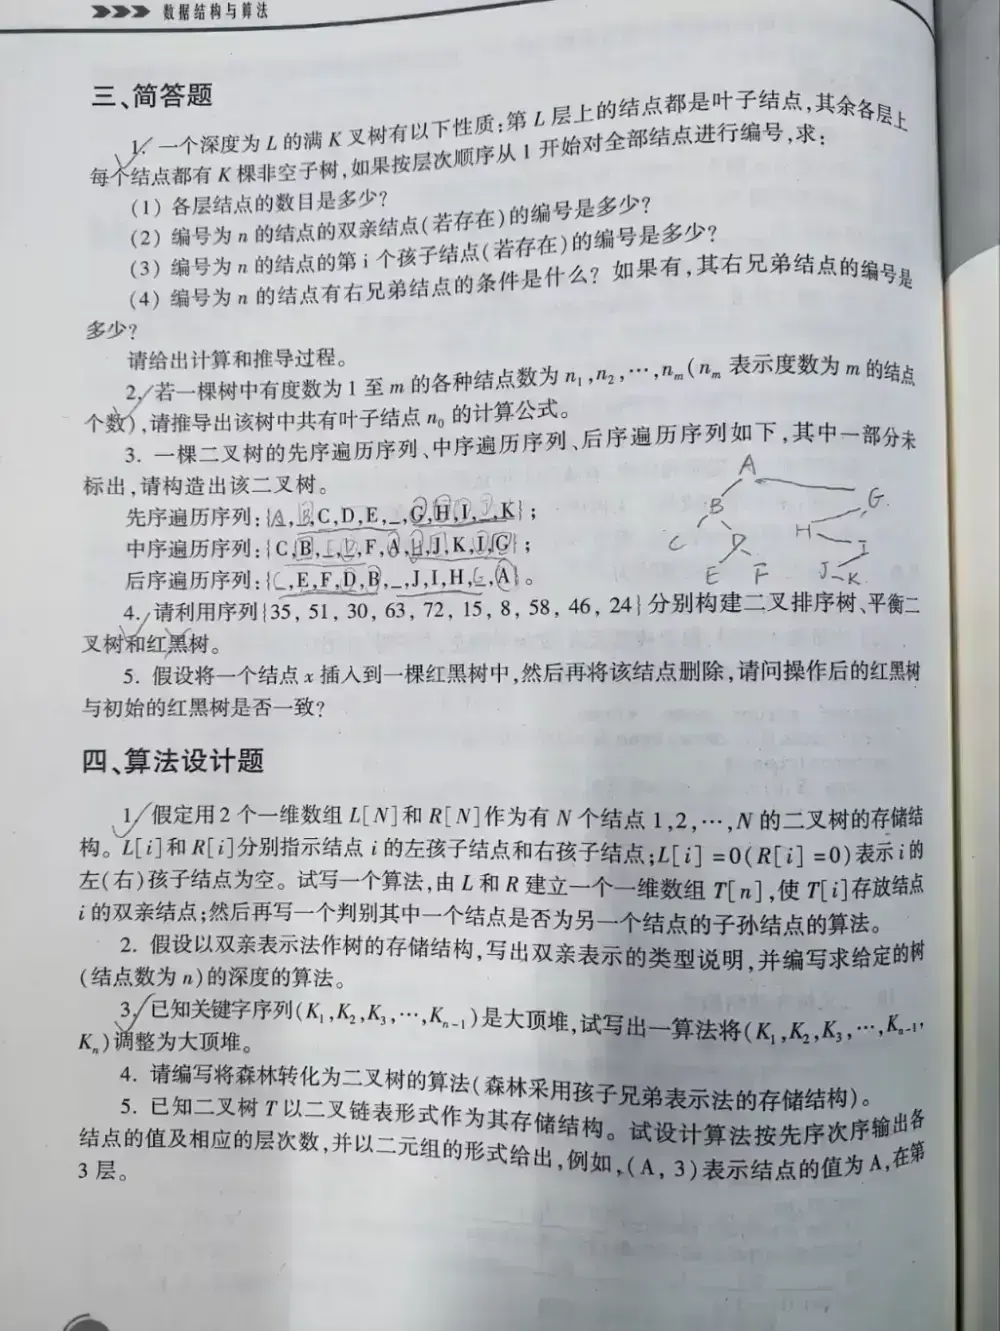 数据结构与算法
三、简答题
1. 一个深度为 L 的满 K 叉树有以下性质:第 L 层上的结点都是叶子结点,其余各层上
每个结点都有 K 棵非空子树,如果按层次顺序从 1 开始对全部结点进行编号,求:
(1) 各层结点的数目是多少?
(2) 编号为 n 的结点的双亲结点(若存在)的编号是多少?
(3) 编号为 n 的结点的第 i 个孩子结点(若存在)的编号是多少?
(4) 编号为 n 的结点有右兄弟结点的条件是什么? 如果有,其右兄弟结点的编号是
多少?
请给出计算和推导过程。
2. 若一棵树中有度数为 1 至 m 的各种结点数为 n₁,n₂,⋯,nₘ(nₘ 表示度数为 m 的结点
个数),请推导出该树中共有叶子结点 n₀ 的计算公式。
3. 一棵二叉树的先序遍历序列、中序遍历序列、后序遍历序列如下,其中一部分未
标出,请构造出该二叉树。
先序遍历序列:{A,B,C,D,E,_,G,H,I,_,K};
中序遍历序列:{C,B,_,D,F,A,H,J,K,I,G};
后序遍历序列:{C,E,F,D,B,_,J,I,H,G,A}。
A
B G
C D H I
E F J K
4. 请利用序列{35, 51, 30, 63, 72, 15, 8, 58, 46, 24}分别构建二叉排序树、平衡二
叉树和红黑树。
5. 假设将一个结点 x 插入到一棵红黑树中,然后再将该结点删除,请问操作后的红黑树
与初始的红黑树是否一致?
四、算法设计题
1. 假定用 2 个一维数组 L[N]和 R[N]作为有 N 个结点 1,2,⋯,N 的二叉树的存储结
构。L[i]和 R[i]分别指示结点 i 的左孩子结点和右孩子结点;L[i] =0(R[i] =0)表示 i 的
左(右)孩子结点为空。试写一个算法,由 L 和 R 建立一个一维数组 T[n],使 T[i]存放结点
i 的双亲结点;然后再写一个判别其中一个结点是否为另一个结点的子孙结点的算法。
2. 假设以双亲表示法作树的存储结构,写出双亲表示的类型说明,并编写求给定的树
(结点数为 n)的深度的算法。
3. 已知关键字序列(K₁,K₂,K₃,⋯,Kₙ₋₁)是大顶堆,试写出一算法将(K₁,K₂,K₃,⋯,Kₙ₋₁,
Kₙ)调整为大顶堆。
4. 请编写将森林转化为二叉树的算法(森林采用孩子兄弟表示法的存储结构)。
5. 已知二叉树 T 以二叉链表形式作为其存储结构。试设计算法按先序次序输出各
结点的值及相应的层次数,并以二元组的形式给出,例如,(A, 3)表示结点的值为 A,在第
3 层。